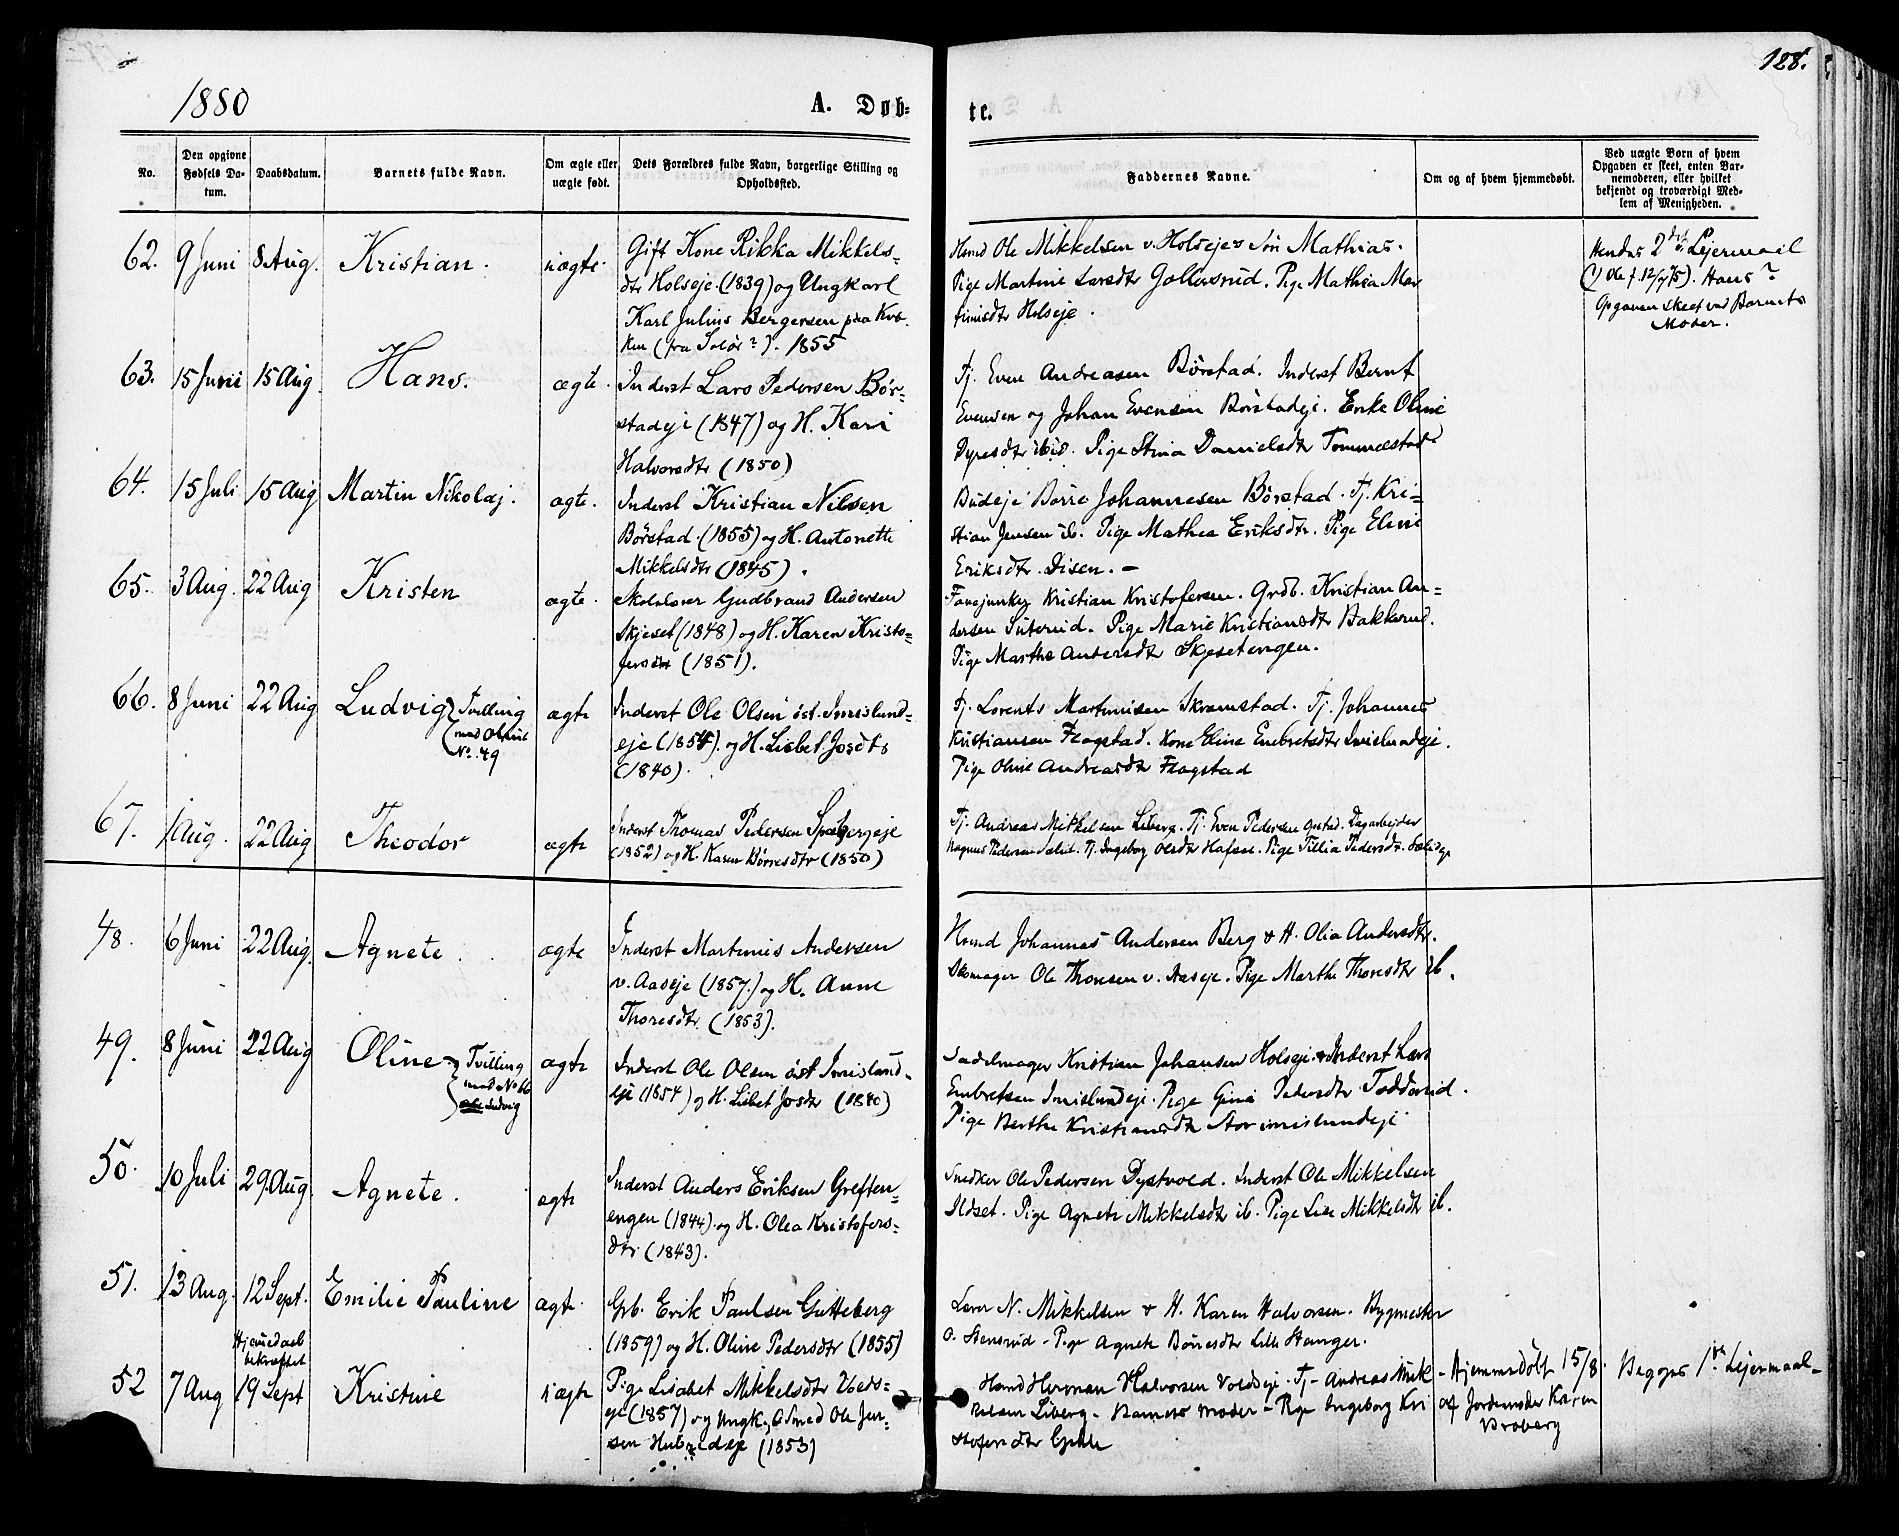 128.
1880
A. Døb-
te.
No.
Den opgivne Fødsels Da-tum.
Daabsdatum.
Barnets fulde Navn.
Om ægte eller uægte født.
Dets Forældres fulde Navn, borgerlige Stilling og Opholdssted.
Faddernes Navne.
Om og af hvem hjemmedøbt.
Ved uægte Børn af hvem Opgaven er skeet, enten Bar-nemoderen, eller hvilket bekjendt og troværdigt Med-lem af Menigheden.
62. 9 Juni 8 Aug. Kristian. uægte.
Gift Kone Rikka Mikkels-
dtr Holseje (1839) og Ungkarl
Karl Julius Bergersen paa Kvæ-
ken (fra Solør?). 1855
Hmd Ole Mikkelsen v. Holsejes Søn Mathias.
Pige Martine Larsdtr Gollerud. Pige Mathea Mar
tinisdtr Holseje.
Hendes 2det Lejermaal
Opgaven skeet ved Barnets
Moder.
63. 15 Juni 15 Aug Hans. ægte.
Inderst Lars Pedersen Bør-
stadeje (1847) og H. Kari
Halvorsdtr (1850)
Tj. Even Andreasen Børstad. Inderst Bernt
Evensen og Johan Evensen Børstadeje. Enke Oline
Dyresdtr ibid. Pige Stina Danielsdtr Tommestad
64. 15 Juli 15 Aug Martin Nikolaj. ægte.
Inderst Kristian Nilsen
Børstad (1855) og H. Antonette
Mikkelsdtr (1845).
Børre Johannesen Børstad. Tj. Kri-
stian Jensen ib. Pige Mathea Eriksdtr. Pige Eline
Eriksdtr. Disen. —
65. 3 Aug. 22 Aug Kristen ægte.
Skolelærer Gudbrand Andersen
Skjeset (1848) og H. Karen Kristo-
fersdtr (1851).
Fanejunker Kristian Kristofersen. Grdb. Kristian An-
dersen Suterud. Pige Marie Kristiansdtr Bakkerud.
Pige Marthe Andersdtr Skjesetengen.
66. 8 Juni 22 Aug Ludvig ægte
Tvilling
med Oline
No. 49
Inderst Ole Olsen øst. Imislund-
eje (1854). og H. Lisbet Josdtr
(1840).
Tj. Lorents Martinisen Skramstad. Tj. Johannes
Kristiansen Flagstad. Kone Eline Enebretsdtr Imislundeje.
Pige Oline Andreasdtr Flagstad
67. 1 Aug. 22 Aug Theodor ægte
Inderst Thomas Pedersen Spælbergeje
(1852) og H. Karen Børresdtr (1850)
Tj. Andreas Mikkelsen Liberg. Tj. Even Pedersen Opstad. Dagarbejder
Magnus Pedersen Sælid. Tj. Ingeborg Olsdtr Hafsæl. Pige Tillia Pedersdtr. Sælideje
48. 6 Juni 22 Aug. Agnete. ægte
Inderst Martinus Andersen
v. Aaseje (1857.) og H. Anne
Thoresdtr. (1853).
Hmd Johannes Andersen Berg & H. Olia Andersdtr.
Skomager Ole Thoresen v. Aaseje. Pige Marthe Thoresdtr ib.
49. 8 Juni 22 Aug Oline ægte
Tvilling
med No 66
Ludvig
Inderst Ole Olsen øst Imislund-
eje (1854) og H. Lisbet Josdtr (1840)
Sadelmager Kristian Johansen Holseje. Inderst Lars
Embretsen Imislundeje. Pige Gina Pedersdtr Todderud.
Pige Berthe Kristiansdtr Storimislundeje
50. 10 Juli 29. Aug. Agnete. ægte
Inderst Anders Eriksen Greften-
engen (1844). og H. Olea Kristofers-
dtr (1843).
Snedker Ole Pedersen Dystvold. Inderst Ole Mikkelsen
Ildset. Pige Agnete Mikkelsdtr ib. Pige Lise Mikkelsdtr ib.
51. 13 Aug. 12 Sept. Emilie Pauline ægte.
Grb. Erik Paulsen Gutteberg
(1859) og H. Oline Pedersdtr (1855)
Lærer N. Mikkelsen & H. Karen Halvorsen. Bygmester
O. Stensrud – Pige Agnete Børresdtr Lille Stanger.
Hjemedaab
bekræftet
52 7 Aug 19 Sept Kristine uægte
Pige Lisabet Mikkelsdtr
eje (1857) og Ungk. Smed Ole Jen-
sen (1853)
Hmd Herman Halvorsen Voldseje. Tj – Andreas Mik
kelsen Liberg – Barnets Moder – Pige Ingeborg Kri
stofersdtr
– Hjemmedøbt 15/8.
af Jordemoder Karen
Broberg
Begges 1ste Lejermaal –